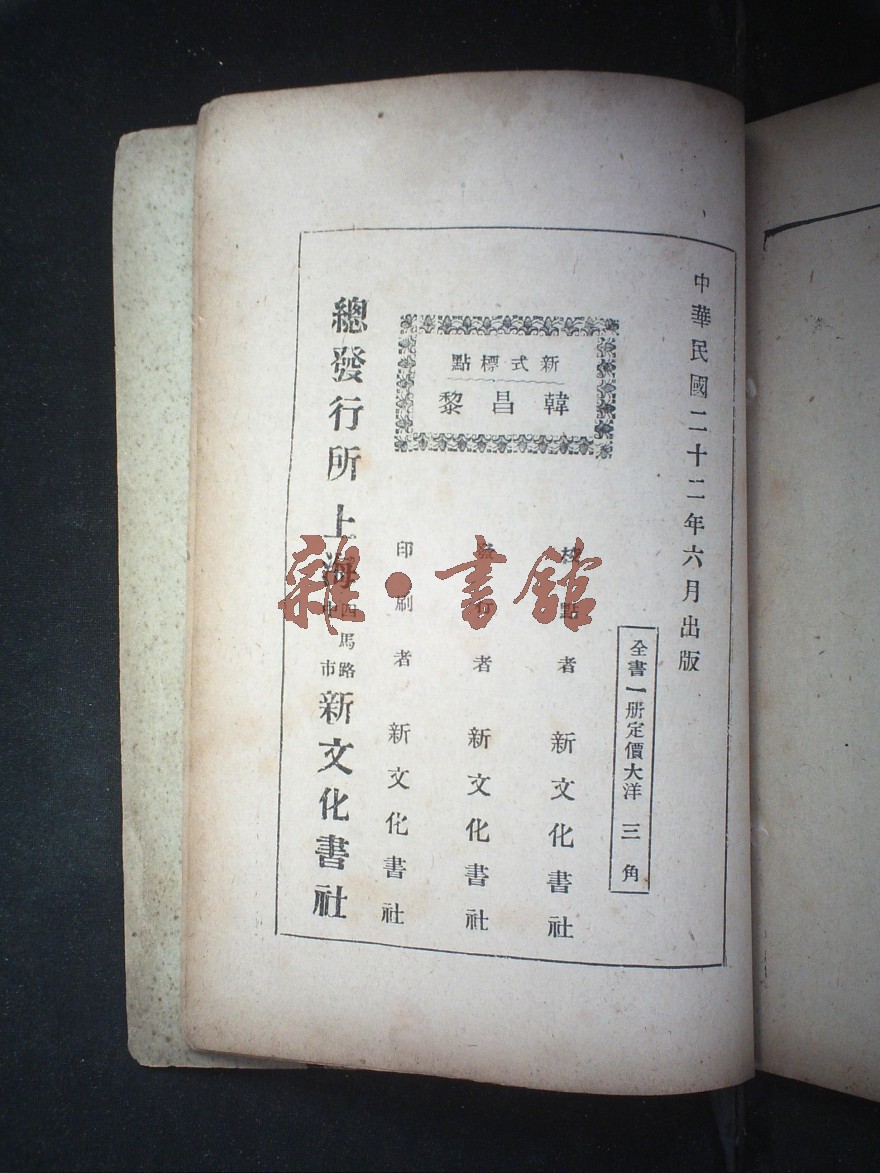 中華民國二十二年六月出版
全書一册定價大洋三角
新式標點
韓昌黎
校點者 新文化書社
發行者 新文化書社
印刷者 新文化書社
總發行所 上海四馬路中市 新文化書社
雜·書館